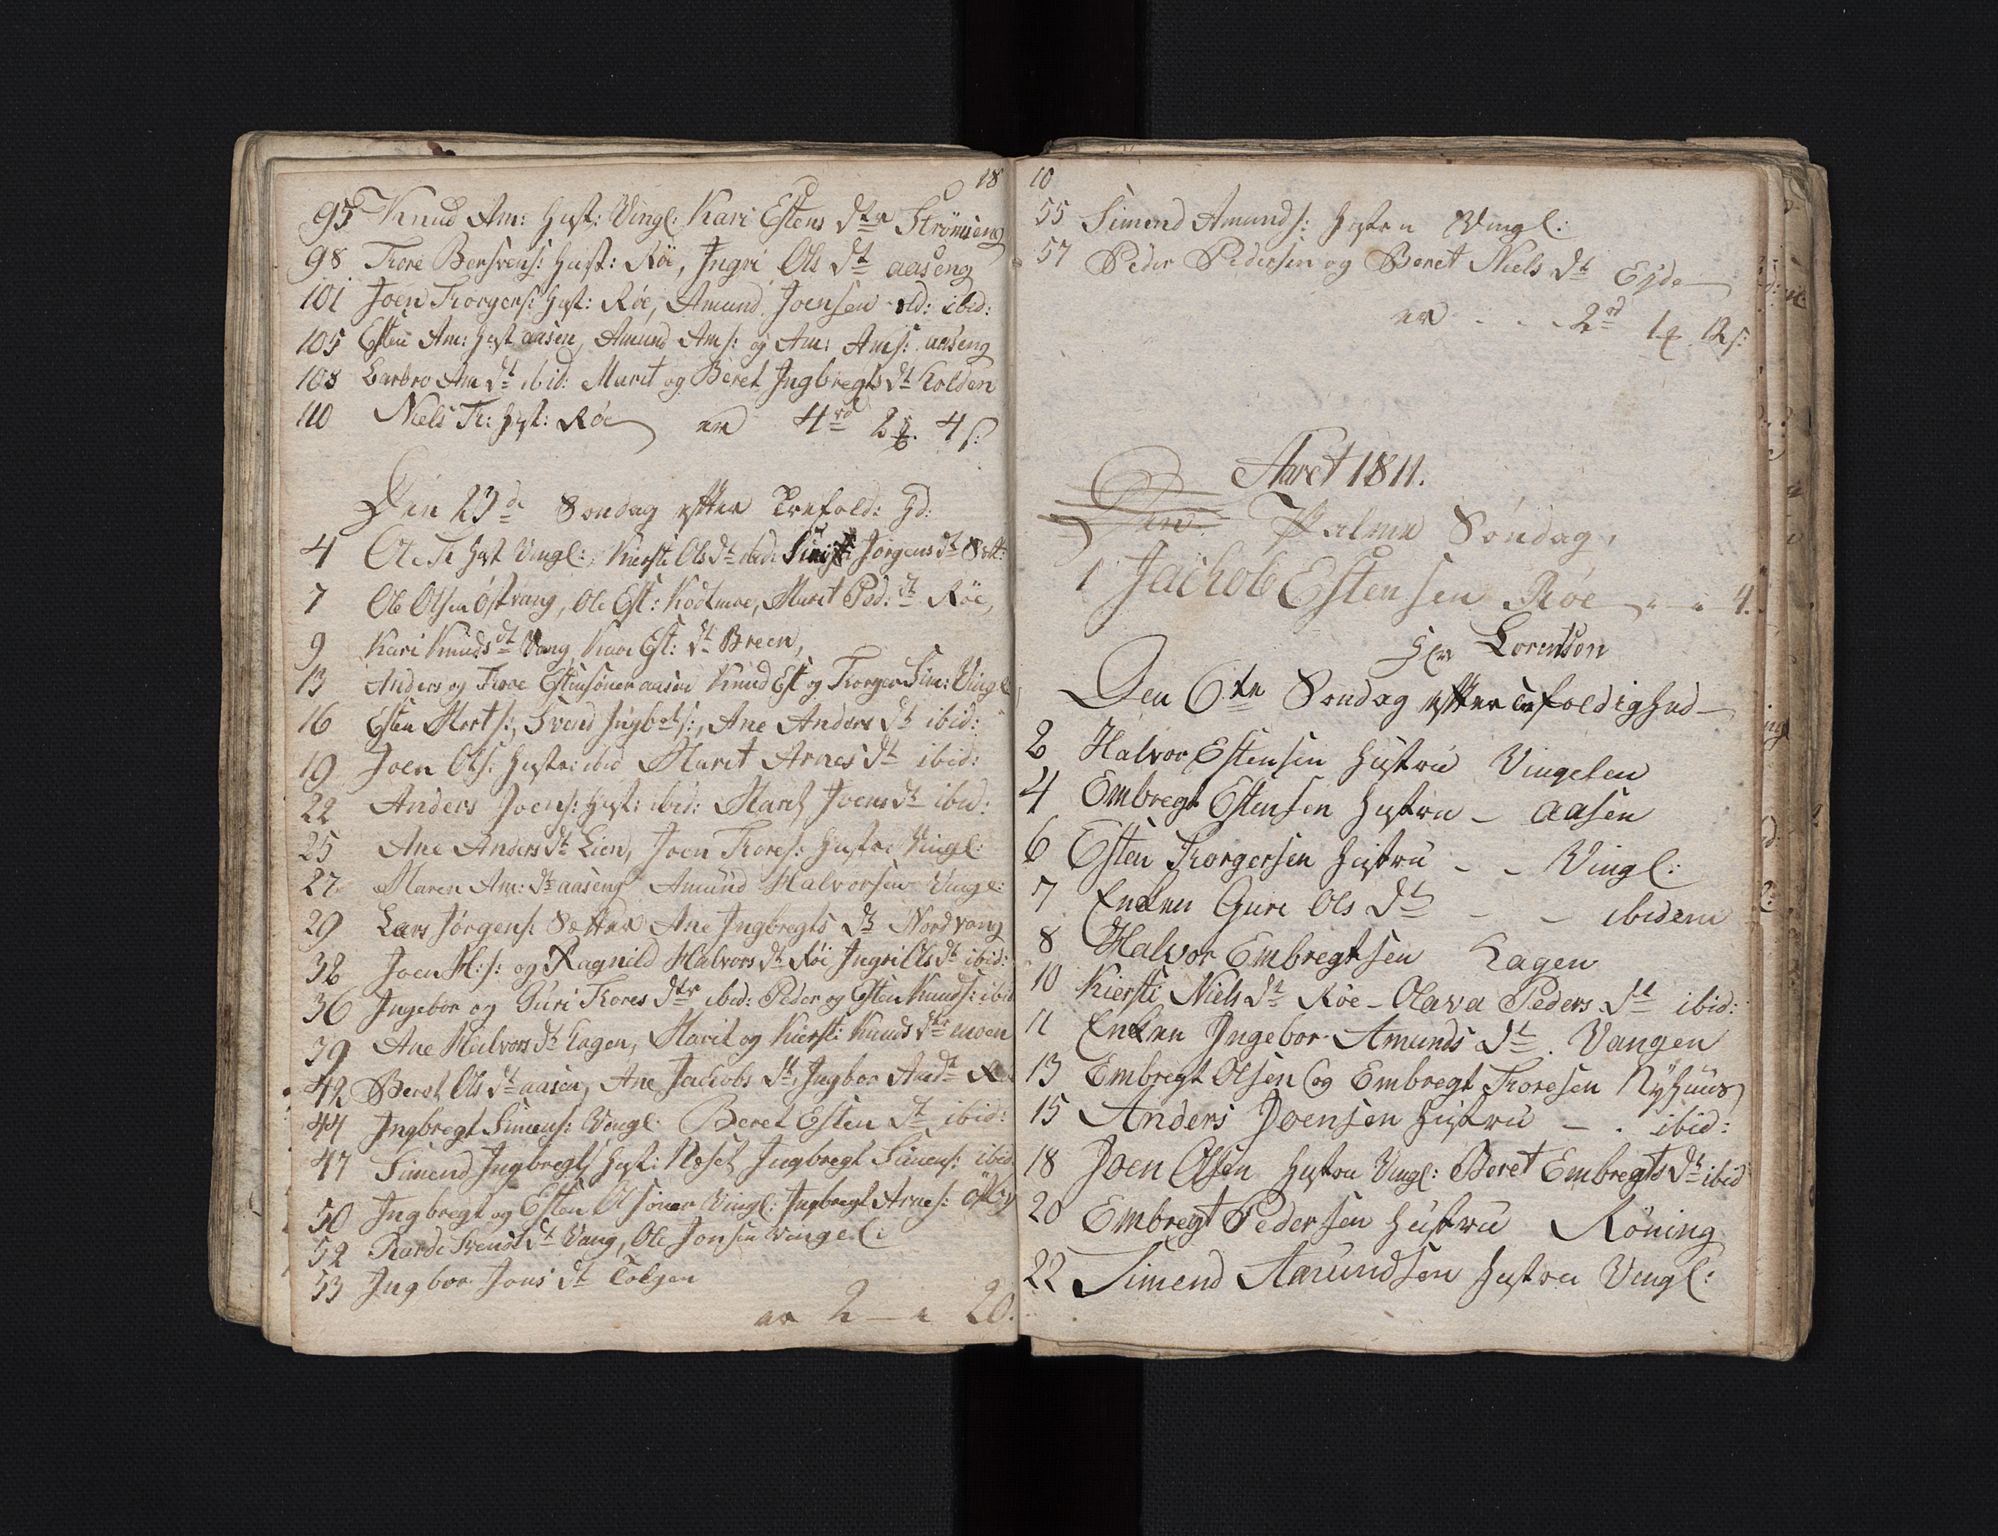 18
95 Knud Am: Hust: Vingl: Kari Estens dtr Strömseng
98 Tore Bersvens: Hust: Röe, Ingri Ols dt aaseng
101 Joen Torgers: Hust: Röe, Amund Joensen ibid:
105 Esten Am: Hust aasen, Amund Ams: og Am: Ams: aaseng
108 Barbro Am dt ibid: Marit og Beret Ingbregts dt Kolden
110 Niels T: Hust: Röe er 4 rd 2 4 s:
Den 23de Søndag efter Trefold: hd:
4 Ole T Hust Vingl: Kiersti Ols dt ibid: Jørgens dt Sætt:
7 Ole Olsen Østvang, Ole Est: Kodtmoe, Marit Ped: dt Röe,
9 Kari Knuds dt Vang, Kari Est: dt Breen,
13 Anders og Tore Estensöner aasen Knud Est og Torger Sim: Vingl
16 Esten Morts:, Svend Ingb s:, Ane Anders dt ibid:
19 Joen Ols: Hustr: ibid Marit Arnes dt ibid:
22 Anders Joens: Hust: ibid: Marit Joens dt ibid:
25 Ane Anders dt Lien, Joen Tores: Hustr Vingl:
27 Maren Am: dt aaseng Amund Halvorsen Vingl:
29 Lars Jørgens: Sætter Ane Ingbregts dt Nordvang
32 Joen H:s: og Ragnild Halvors dt Röe Ingri Ols dt ibid:
36 Ingebor og Guri Tores dtr ibid: Peder og Esten Knuds: ibid
39 Ane Halvors dt Lagen, Marit og Kiersti Knuds dtr moen
42 Beret Ols dt aasen, Ane Jachobs dt, Ingbor Am dt Rö
44 Ingbregt Simens: Vingl: Beret Esten dt ibid:
47 Simend Ingbregts Hust: Neset Ingbregt Simens: ibid
50 Ingbregt og Esten Olsöner Vingl: Ingbregt Arnes:
52 Svends dt Vang, Ole Jonsen Vingel:
53 Ingbor Jons dt Tolgen
er 2 — " 20.
10
55 Simend Amunds: Hustru Vingl:
57 Peder Pedersen og Beret Niels dt Eyde
er - - - 2 rd 1 12 s:
Aaret 1811.
Den Palme Søndag,
1 Jachob Estensen Röe - " " 4.
Hr Lorentsen
Den 6te Søndag efter Trefoldighed
2 Halvor Estensen Hustru Vingelen
4 Embregt Estensen Hustru - aasen
6 Esten Torgersen Hustru - - Vingl:
7 Enken Guri Ols dt - - ibidem
8 Halvor Embregtsen Lagen
10 Kiersti Niels dt Röe - Olava Peders dt ibid:
11 Enken Ingebor Amunds dt . Vangen
13 Embregt Olsen og Embregt Toresen Nyhuus
15 Anders Joensen Hustru - . ibid:
18 Joen Olsen Hustru Vingl: Beret Embregts dt ibid
20 Embregt Pedersen Hustru Röning
22 Simend Amundsen Hustru Vingl: